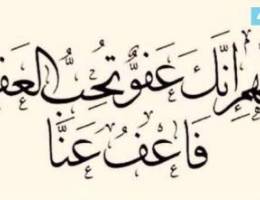 لهم إنك عفو تحب العف
فاعف عنا